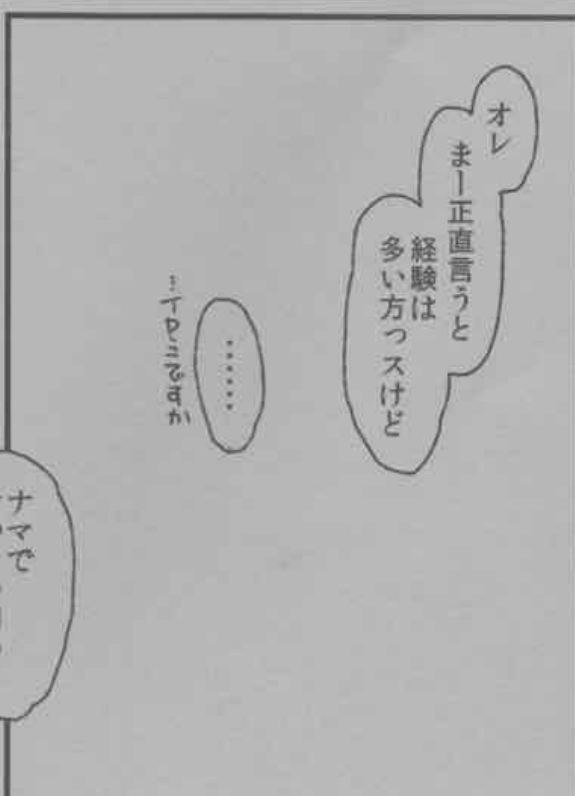 オレ
まー正直言うと
経験は
多い方っスけど
……
ですか
ナマで